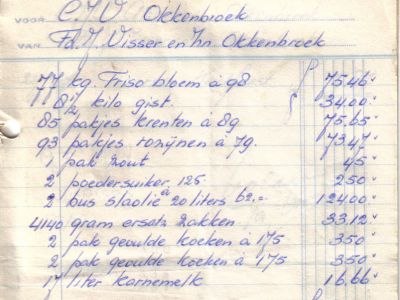 VOOR C.J.V. Okkenbroek
VAN Fa. J. Visser en Zn. Okkenbroek
77 kg. Friso bloem à 98 75.46
8 1/2 kilo gist. 34.00
85 pakjes krenten à 89 75.65
93 pakjes rozijnen à 79. 73.47
1 pak zout. 45
2 poedersuiker à 125 2.50
2 bus slaolie 20 liters 62,= 124.00
4140 gram ersatz zakken. 33.12
2 pak gevulde koeken à 175 3.50
2 pak gevulde koeken à 175 3.50
17 liter karnemelk 16.66